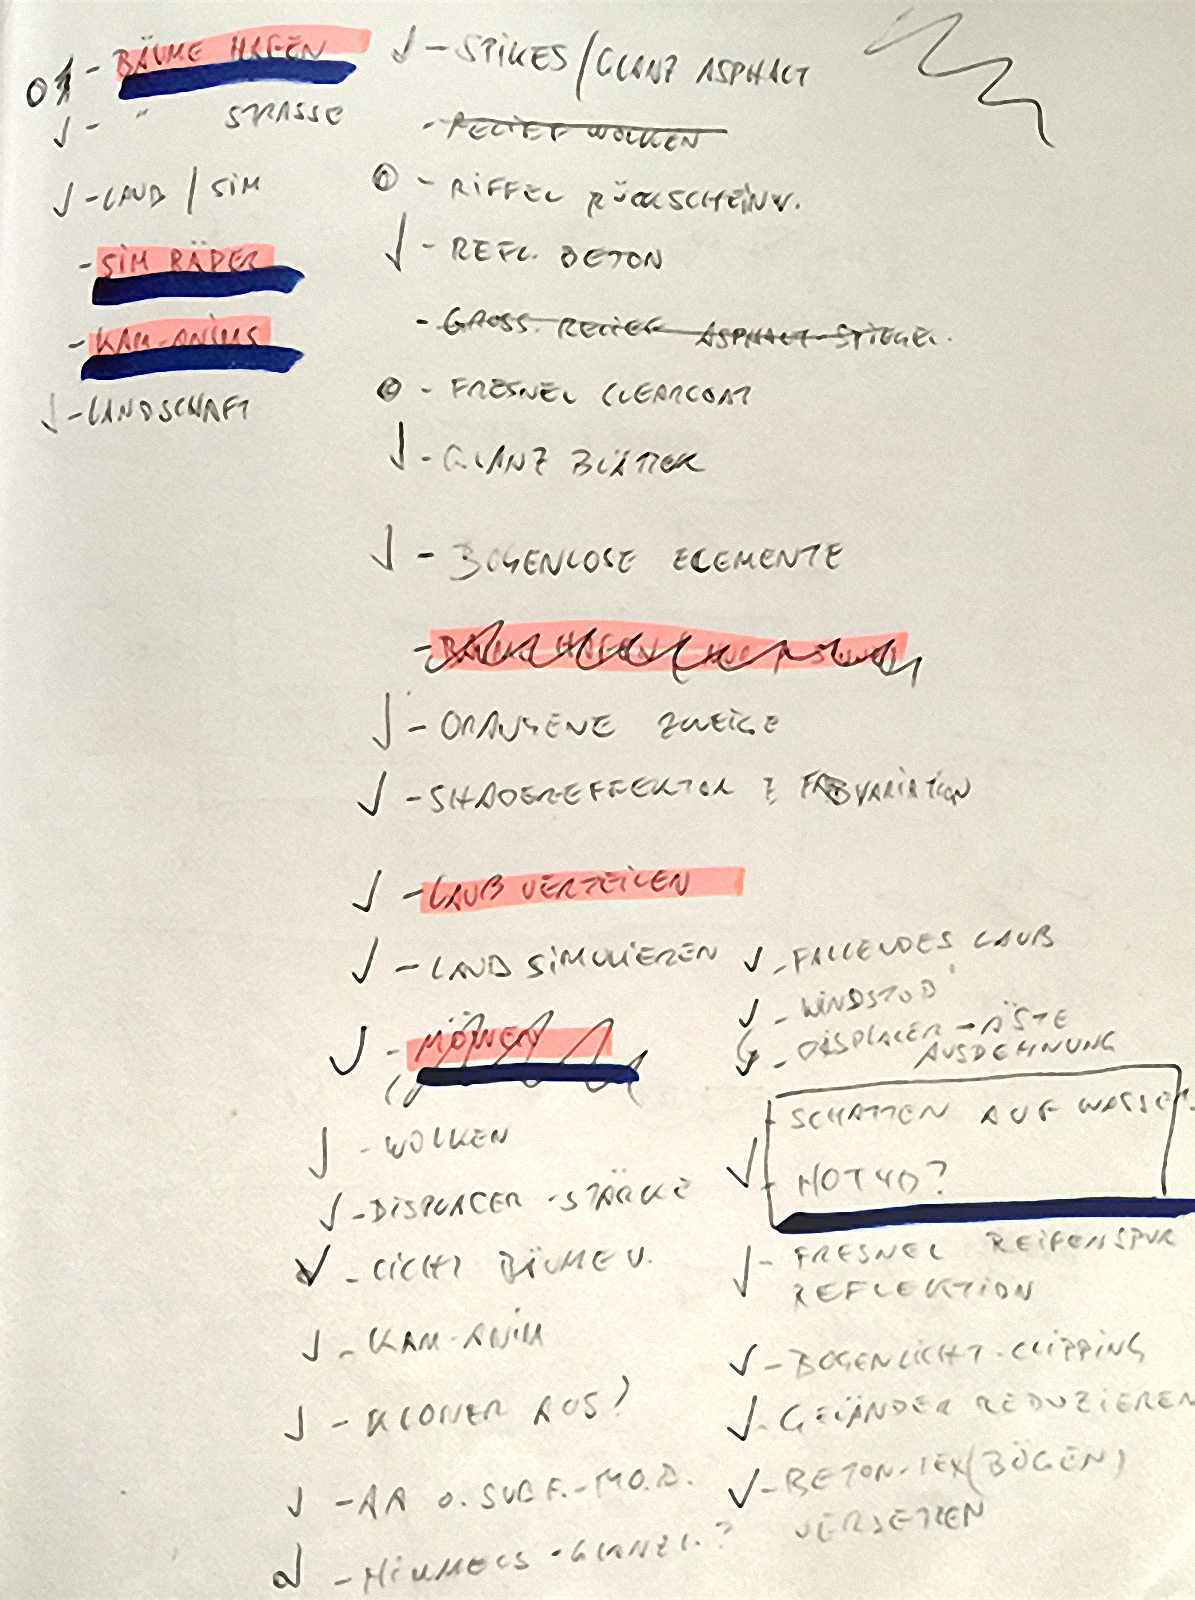 - BÄUME HAFEN
- " STRASSE
- LAUB / SIM
- SIM RÄDER
- KAM-ANIMS
- LANDSCHAFT
- SPIKES / GLANZ ASPHALT
- RELIEF WOLKEN
- RIFFEL RÜCKSCHEINW.
- REFL. BETON
- GROSS. RELIEF ASPHALT-SPIEGEL.
- FRESNEL CLEARCOAT
- GLANZ BLÄTTER
- BOGENLOSE ELEMENTE
- BÄUME HAFEN
- ORANGENE ZWEIGE
- SHADEREFFEKTOR Z FARBVARIATION
- LAUB VERTEILEN
- LAUB SIMULIEREN
- MÖWEN
- WOLKEN
- DISPLACER-STÄRKE
- LICHT BÄUME V.
- KAM-ANIM
- KLONER AUS?
- AA O. SUB F.-MO.B.
- HIMMELS-GLANZL.?
- FALLENDES LAUB
- WINDSTOß
- DISPLACER-ÄSTE
AUSDEHNUNG
- SCHATTEN AUF WASSER
- HOT4D?
- FRESNEL REIFENSPUR
REFLEKTION
- BOGENLICHT-CLIPPING
- GELÄNDER REDUZIEREN
- BETON-TEX (BÖGEN)
VERSETZEN